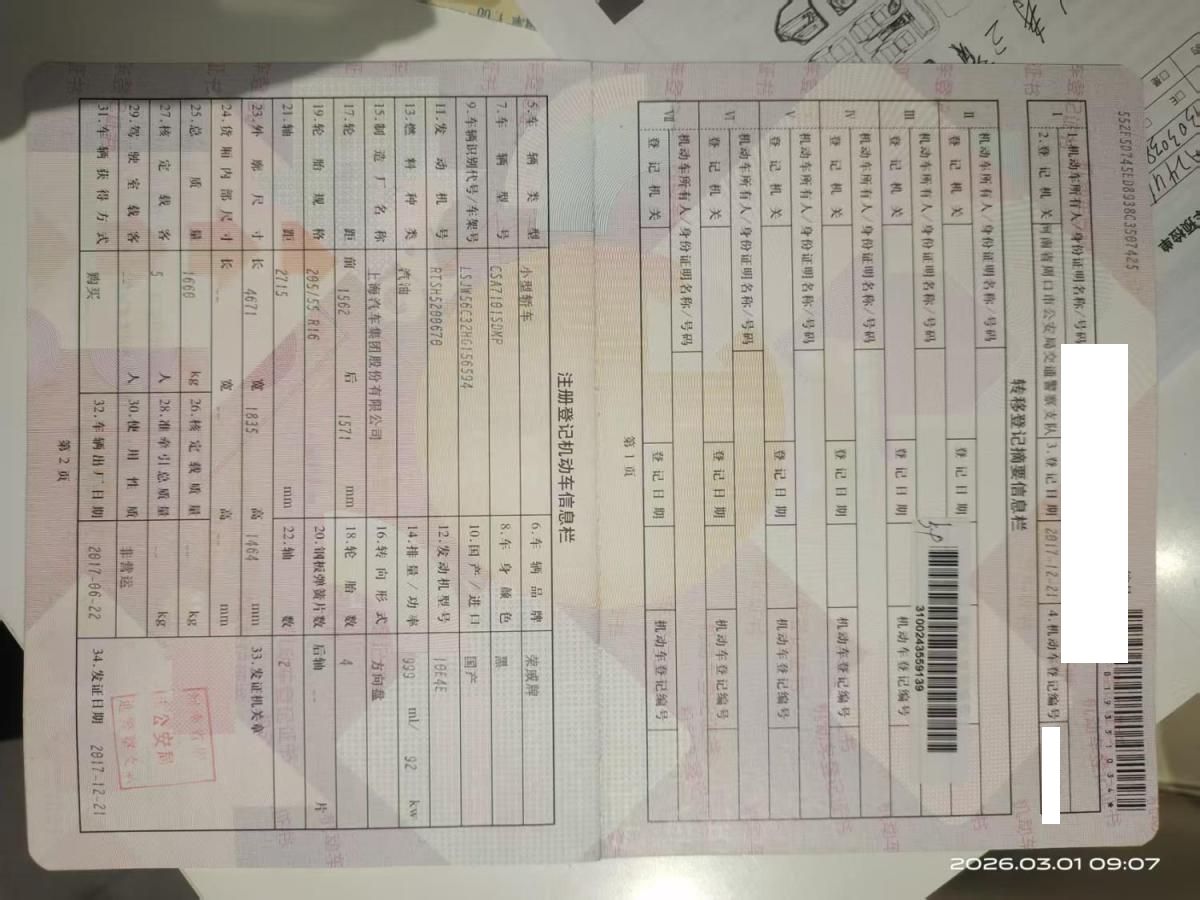 552F50745ED8938C3507425
1.机动车所有人/身份证明名称/号码
I
2.登记机关 河南省周口市公安局交通警察支队 3.登记日期 2017-12-21 4.机动车登记编号
转移登记摘要信息栏
机动车所有人/身份证明名称/号码
II
登记机关 登记日期
机动车所有人/身份证明名称/号码
III
登记机关 登记日期 机动车登记编号
机动车所有人/身份证明名称/号码
IV
登记机关 登记日期 机动车登记编号
机动车所有人/身份证明名称/号码
V
登记机关 登记日期 机动车登记编号
机动车所有人/身份证明名称/号码
VI
登记机关 登记日期 机动车登记编号
机动车所有人/身份证明名称/号码
VII
登记机关 登记日期 机动车登记编号
3100243559139
第 1 页
注册登记机动车信息栏
5.车辆类型 小型轿车 6.车辆品牌 荣威牌
7.车辆型号 CSA7101SDMP 8.车身颜色 黑
9.车辆识别代号/车架号 LSJW56C32HG156594 10.国产/进口 国产
11.发动机号 RTSH5200670 12.发动机型号 10E4E
13.燃料种类 汽油 14.排量/功率 999 ml/ 92 kw
15.制造厂名称 上海汽车集团股份有限公司 16.转向形式 方向盘
17.轮距 前 1562 后 1571 mm 18.轮胎数 4
19.轮胎规格 205/55 R16 20.钢板弹簧片数 后轴 -- 片
21.轴距 2715 mm 22.轴数 2
23.外廓尺寸 长 4671 宽 1835 高 1464 mm 33.发证机关章
24.货厢内部尺寸 长 -- 宽 -- 高 -- mm
25.总质量 1660 kg 26.核定载质量 -- kg
27.核定载客 5 人 28.准牵引总质量 -- kg
29.驾驶室载客 -- 人 30.使用性质 非营运
31.车辆获得方式 购买 32.车辆出厂日期 2017-06-22 34.发证日期 2017-12-21
第 2 页
2026.03.01 09:07